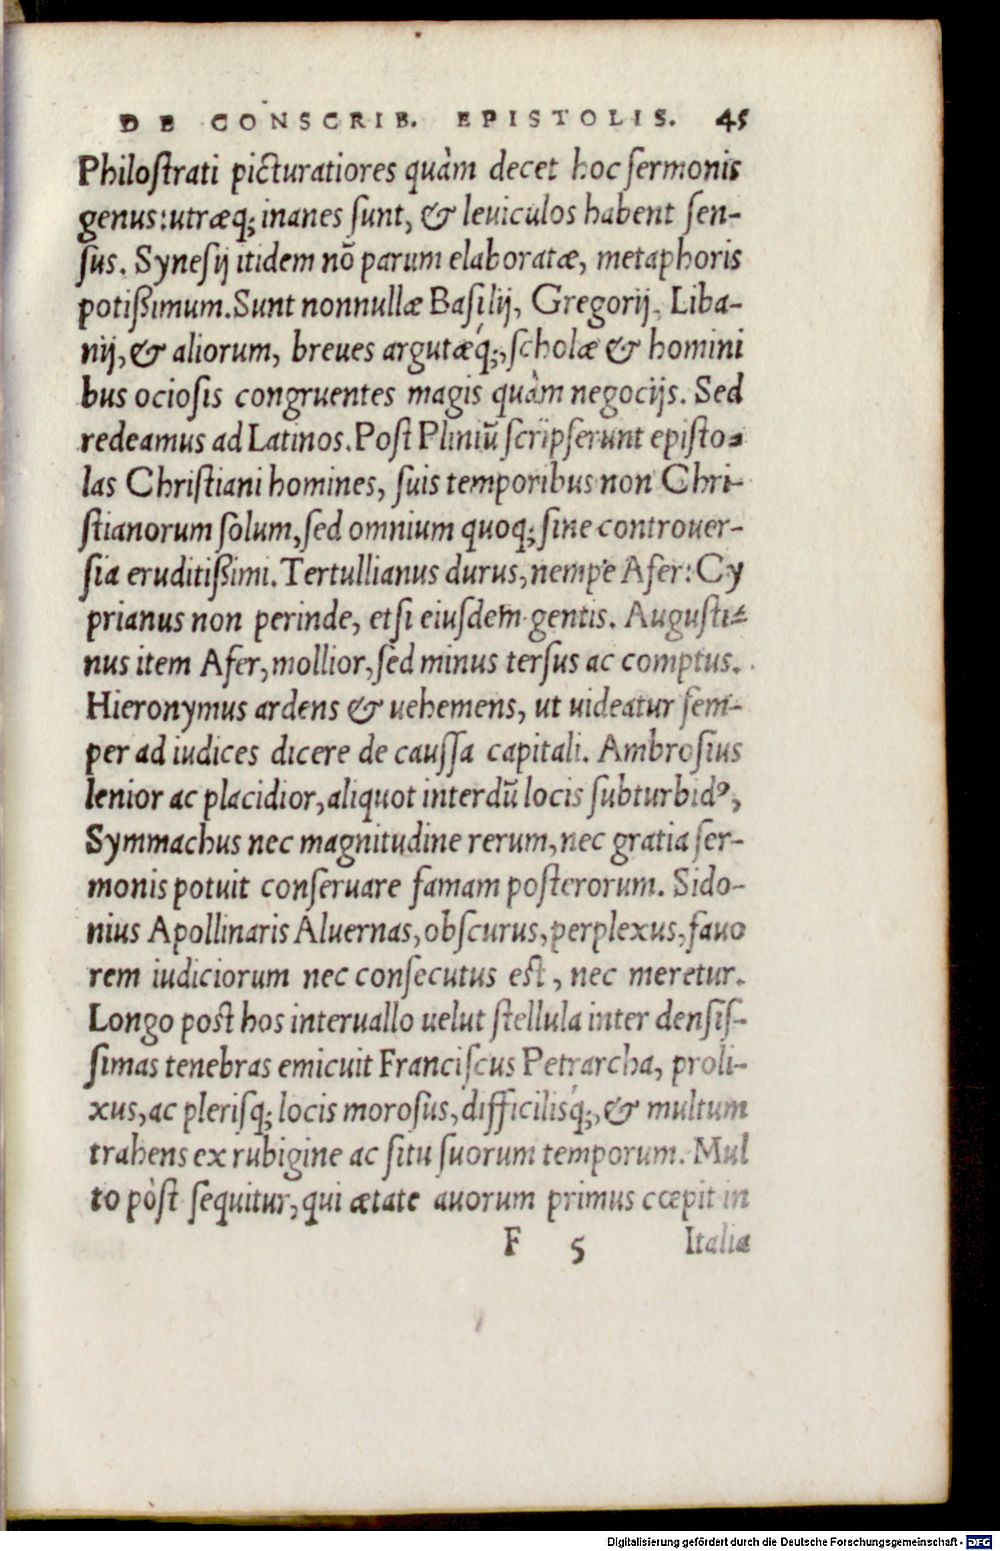 DE CONSCRIB. EPISTOLIS. 45
Philoſtrati picturatiores quàm decet hoc ſermonis
genus: utræq; inanes ſunt, & leuiculos habent ſen-
ſus. Syneſij itidem nõ parum elaboratæ, metaphoris
potißimum. Sunt nonnullæ Baſilij, Gregorij, Liba-
nij, & aliorum, breues argutæq́;, ſcholæ & homini
bus ocioſis congruentes magis quàm negocijs. Sed
redeamus ad Latinos. Poſt Pliniũ ſcripſerunt epiſto-
las Chriſtiani homines, ſuis temporibus non Chri-
ſtianorum ſolum, ſed omnium quoq; ſine controuer-
ſia eruditißimi. Tertullianus durus, nempe Afer: Cy
prianus non perinde, etſi eiuſdem gentis. Auguſti-
nus item Afer, mollior, ſed minus terſus ac comptus.
Hieronymus ardens & uehemens, ut uideatur ſem-
per ad iudices dicere de cauſſa capitali. Ambroſius
lenior ac placidior, aliquot interdũ locis ſubturbidꝰ,
Symmachus nec magnitudine rerum, nec gratia ſer-
monis potuit conſeruare famam poſterorum. Sido-
nius Apollinaris Aluernas, obſcurus, perplexus, fauo
rem iudiciorum nec conſecutus eſt, nec meretur.
Longo poſt hos interuallo uelut ſtellula inter denſiſ-
ſimas tenebras emicuit Franciſcus Petrarcha, proli-
xus, ac pleriſq; locis moroſus, difficilisq́;, & multum
trahens ex rubigine ac ſitu ſuorum temporum. Mul
to pòſt ſequitur, qui ætate auorum primus cœpit in
F 5 Italia
Digitalisierung gefördert durch die Deutsche Forschungsgemeinschaft - DFG